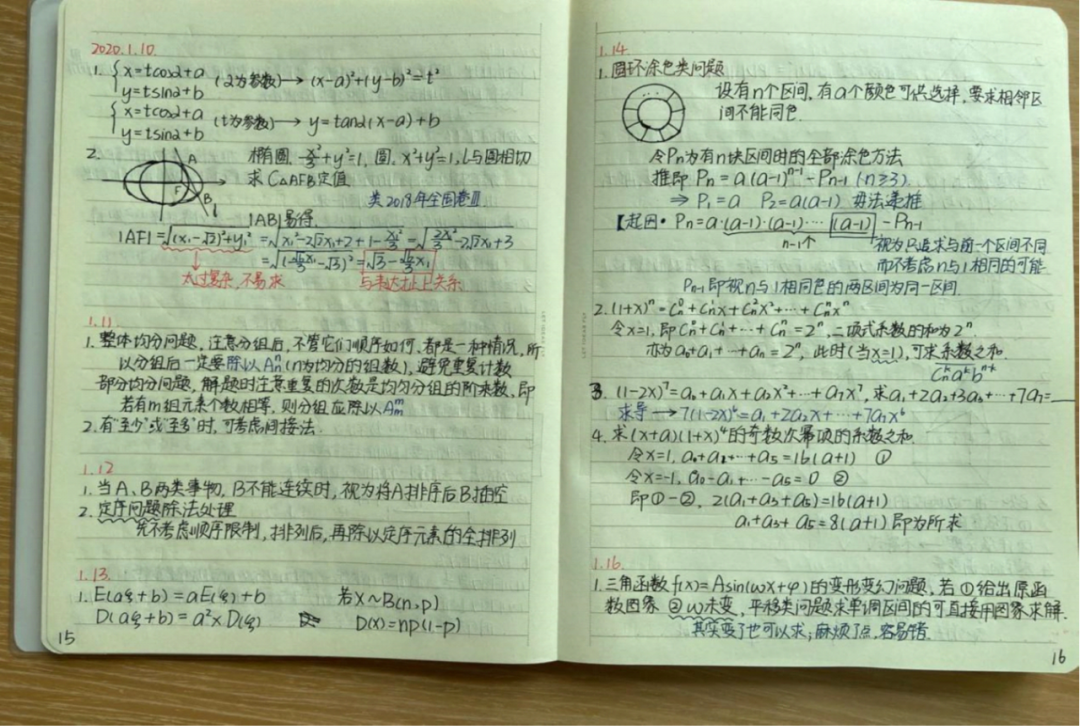 2020.1.10.
1. { x=tcosα+a
y=tsinα+b (α为参数)→ (x-a)²+(y-b)²=t²
{ x=tcosα+a
y=tsinα+b (t为参数)→ y=tanα(x-a)+b
2.
A
F
B
l
椭圆 x²/3+y²=1, 圆. x²+y²=1, l与圆相切
求C△AFB定值
类2018年全国卷Ⅲ
|AB|易得.
|AF|=√(x₁-√2)²+y₁² =√x₁²-2√2x₁+2+1-x₁²/3 =√2x₁²/3-2√2x₁+3
=√(√2/√3x₁-√3)² =√3-√2/√3x₁
太过复杂,不易求
与表达扯上关系
1.11.
1. 整体均分问题, 注意分组后, 不管它们顺序如何, 都是一种情况, 所
以分组后一定要除以Aⁿₙ(n为均分的组数), 避免重复计数
部分均分问题, 解题时注意重复的次数是均匀分组的阶乘数, 即
若有m组元素个数相等, 则分组应除以Aᵐₘ
2. 有“至少”或“至多”时, 可考虑间接法.
1.12
1. 当A、B两类事物, B不能连续时, 视为将A排序后B插空
2. 定序问题除法处理
先不考虑顺序限制, 排列后, 再除以定序元素的全排列
1.13.
1. E(aξ+b)=aE(ξ)+b 若X~B(n,p)
D(aξ+b)=a²×D(ξ) D(X)=np(1-p)
15
1.14
1. 圆环涂色类问题
设有n个区间, 有a个颜色可供选择, 要求相邻区
间不能同色.
令Pn为有n块区间时的全部涂色方法
推即 Pn=a(a-1)ⁿ⁻¹-Pn-1 (n≥3)
⇒ P₁=a P₂=a(a-1) 毋法递推
【起因· Pn=a·(a-1)·(a-1)···· (a-1) -Pn-1
n-1个
视为只追求与前一个区间不同
而不考虑n与1相同的可能
Pn-1即视n与1相同色的两区间为同一区间.
2. (1+x)ⁿ=C⁰ₙ+C¹ₙx+C²ₙx²+···+Cⁿₙxⁿ
令x=1, 即C⁰ₙ+C¹ₙ+···+Cⁿₙ=2ⁿ, 二项式系数的和为2ⁿ.
亦为a₀+a₁+···+aₙ=2ⁿ, 此时(当x=1), 可求系数之和.
Cᵏₙaᵏbⁿ⁻ᵏ
3. (1-2x)⁷=a₀+a₁x+a₂x²+···+a₇x⁷, 求a₁+2a₂+3a₃+···+7a₇=___
求导→7(1-2x)⁶=a₁+2a₂x+···+7a₇x⁶
4. 求(x+a)(1+x)⁴的奇数次幂项的系数之和.
令x=1, a₀+a₁+···+a₅=16(a+1) ①
令x=-1, a₀-a₁+···-a₅=0 ②
即①-②, 2(a₁+a₃+a₅)=16(a+1)
a₁+a₃+a₅=8(a+1) 即为所求
1.16.
1. 三角函数f(x)=Asin(ωx+φ)的变形变幻问题, 若①给出原函
数图象 ②ω未变, 平移类问题求单调区间的可直接用图象求解.
其实变了也可以求, 麻烦了点. 容易错.
16